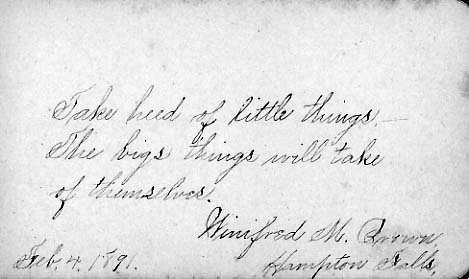 Take heed of little things —
The bigs things will take
of themselves.
Winifred M. Brown,
Feb. 4. 1891. Hampton Falls,